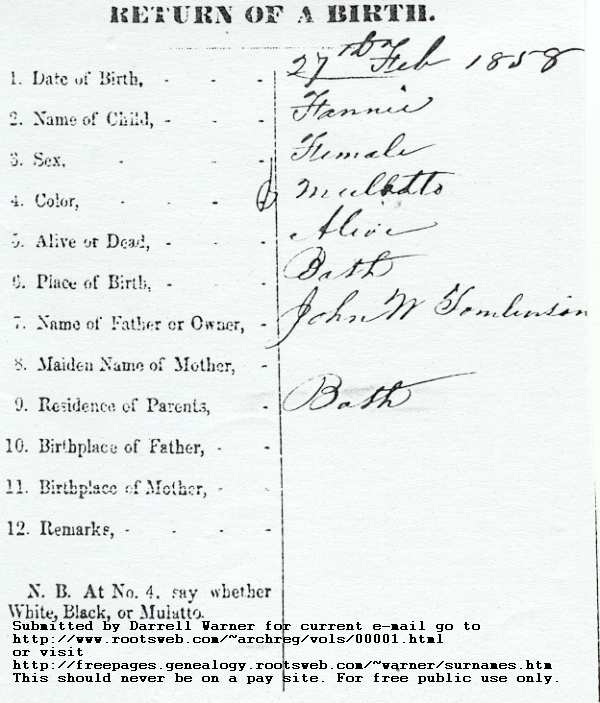 RETURN OF A BIRTH.
1. Date of Birth, - - - 27th Feb 1858
2. Name of Child, - - - Fannie
3. Sex, - - - Female
4. Color, - - - Mulatto
5. Alive or Dead, - - - Alive
6. Place of Birth, - - - Bath
7. Name of Father or Owner, - John W Tomlinson
8. Maiden Name of Mother, -
9. Residence of Parents, - Bath
10. Birthplace of Father, - -
11. Birthplace of Mother, - -
12. Remarks, - - - -
N. B. At No. 4. say whether
White, Black, or Mulatto.
Submitted by Darrell Warner for current e-mail go to
http://www.rootsweb.com/~archreg/vols/00001.html
or visit
http://freepages.genealogy.rootsweb.com/~warner/surnames.htm
This should never be on a pay site. For free public use only.